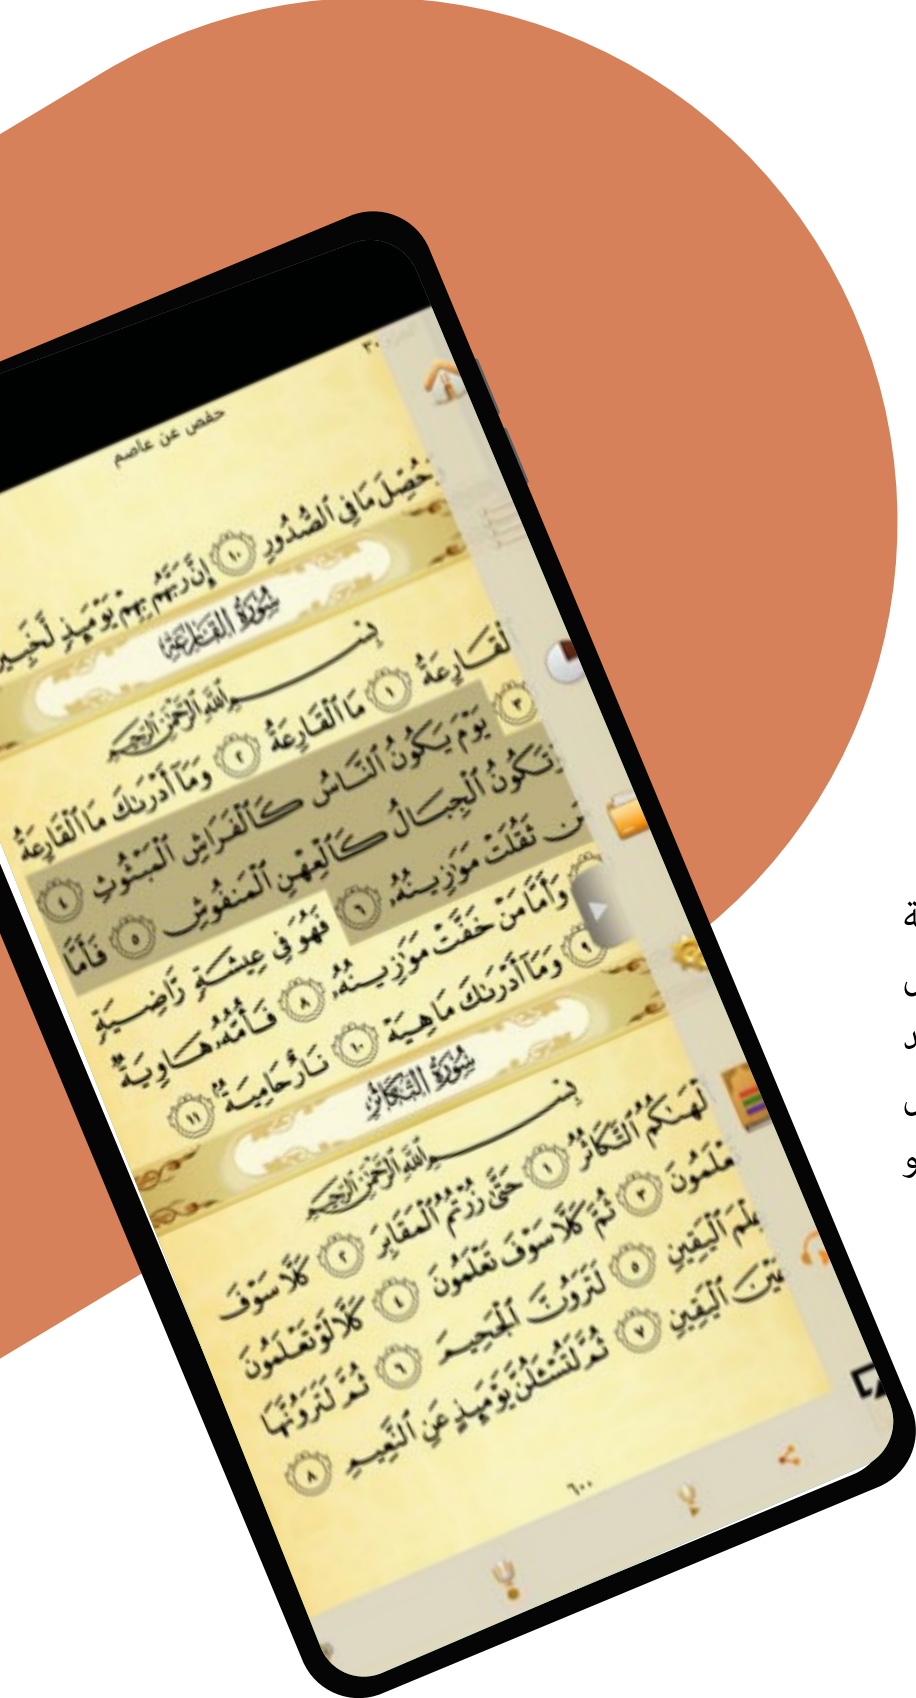 ٣٠
حفص عن عاصم
حُصِّلَ مَا فِي ٱلصُّدُورِ ١٠ إِنَّ رَبَّهُم بِهِمْ يَوْمَئِذٍ لَّخَبِيرٌ
سُورَةُ القَارِعَةِ
بِسْمِ ٱللَّهِ ٱلرَّحْمَٰنِ ٱلرَّحِيمِ
لْقَارِعَةُ ١ مَا ٱلْقَارِعَةُ ٢ وَمَآ أَدْرَىٰكَ مَا ٱلْقَارِعَةُ
٣ يَوْمَ يَكُونُ ٱلنَّاسُ كَٱلْفَرَاشِ ٱلْمَبْثُوثِ ٤
وَتَكُونُ ٱلْجِبَالُ كَٱلْعِهْنِ ٱلْمَنفُوشِ ٥ فَأَمَّا
مَن ثَقُلَتْ مَوَٰزِينُهُۥ ٦ فَهُوَ فِي عِيشَةٍ رَّاضِيَةٍ
وَأَمَّا مَنْ خَفَّتْ مَوَٰزِينُهُۥ ٨ فَأُمُّهُۥ هَاوِيَةٌ
٩ وَمَآ أَدْرَىٰكَ مَا هِيَهْ ١٠ نَارٌ حَامِيَةٌۢ ١١
سُورَةُ التَّكَاثُرِ
بِسْمِ ٱللَّهِ ٱلرَّحْمَٰنِ ٱلرَّحِيمِ
لْهَىٰكُمُ ٱلتَّكَاثُرُ ١ حَتَّىٰ زُرْتُمُ ٱلْمَقَابِرَ ٢ كَلَّا سَوْفَ
تَعْلَمُونَ ٣ ثُمَّ كَلَّا سَوْفَ تَعْلَمُونَ ٤ كَلَّا لَوْ تَعْلَمُونَ
عِلْمَ ٱلْيَقِينِ ٥ لَتَرَوُنَّ ٱلْجَحِيمَ ٦ ثُمَّ لَتَرَوُنَّهَا
عَيْنَ ٱلْيَقِينِ ٧ ثُمَّ لَتُسْـَٔلُنَّ يَوْمَئِذٍ عَنِ ٱلنَّعِيمِ ٨
٦٠٠